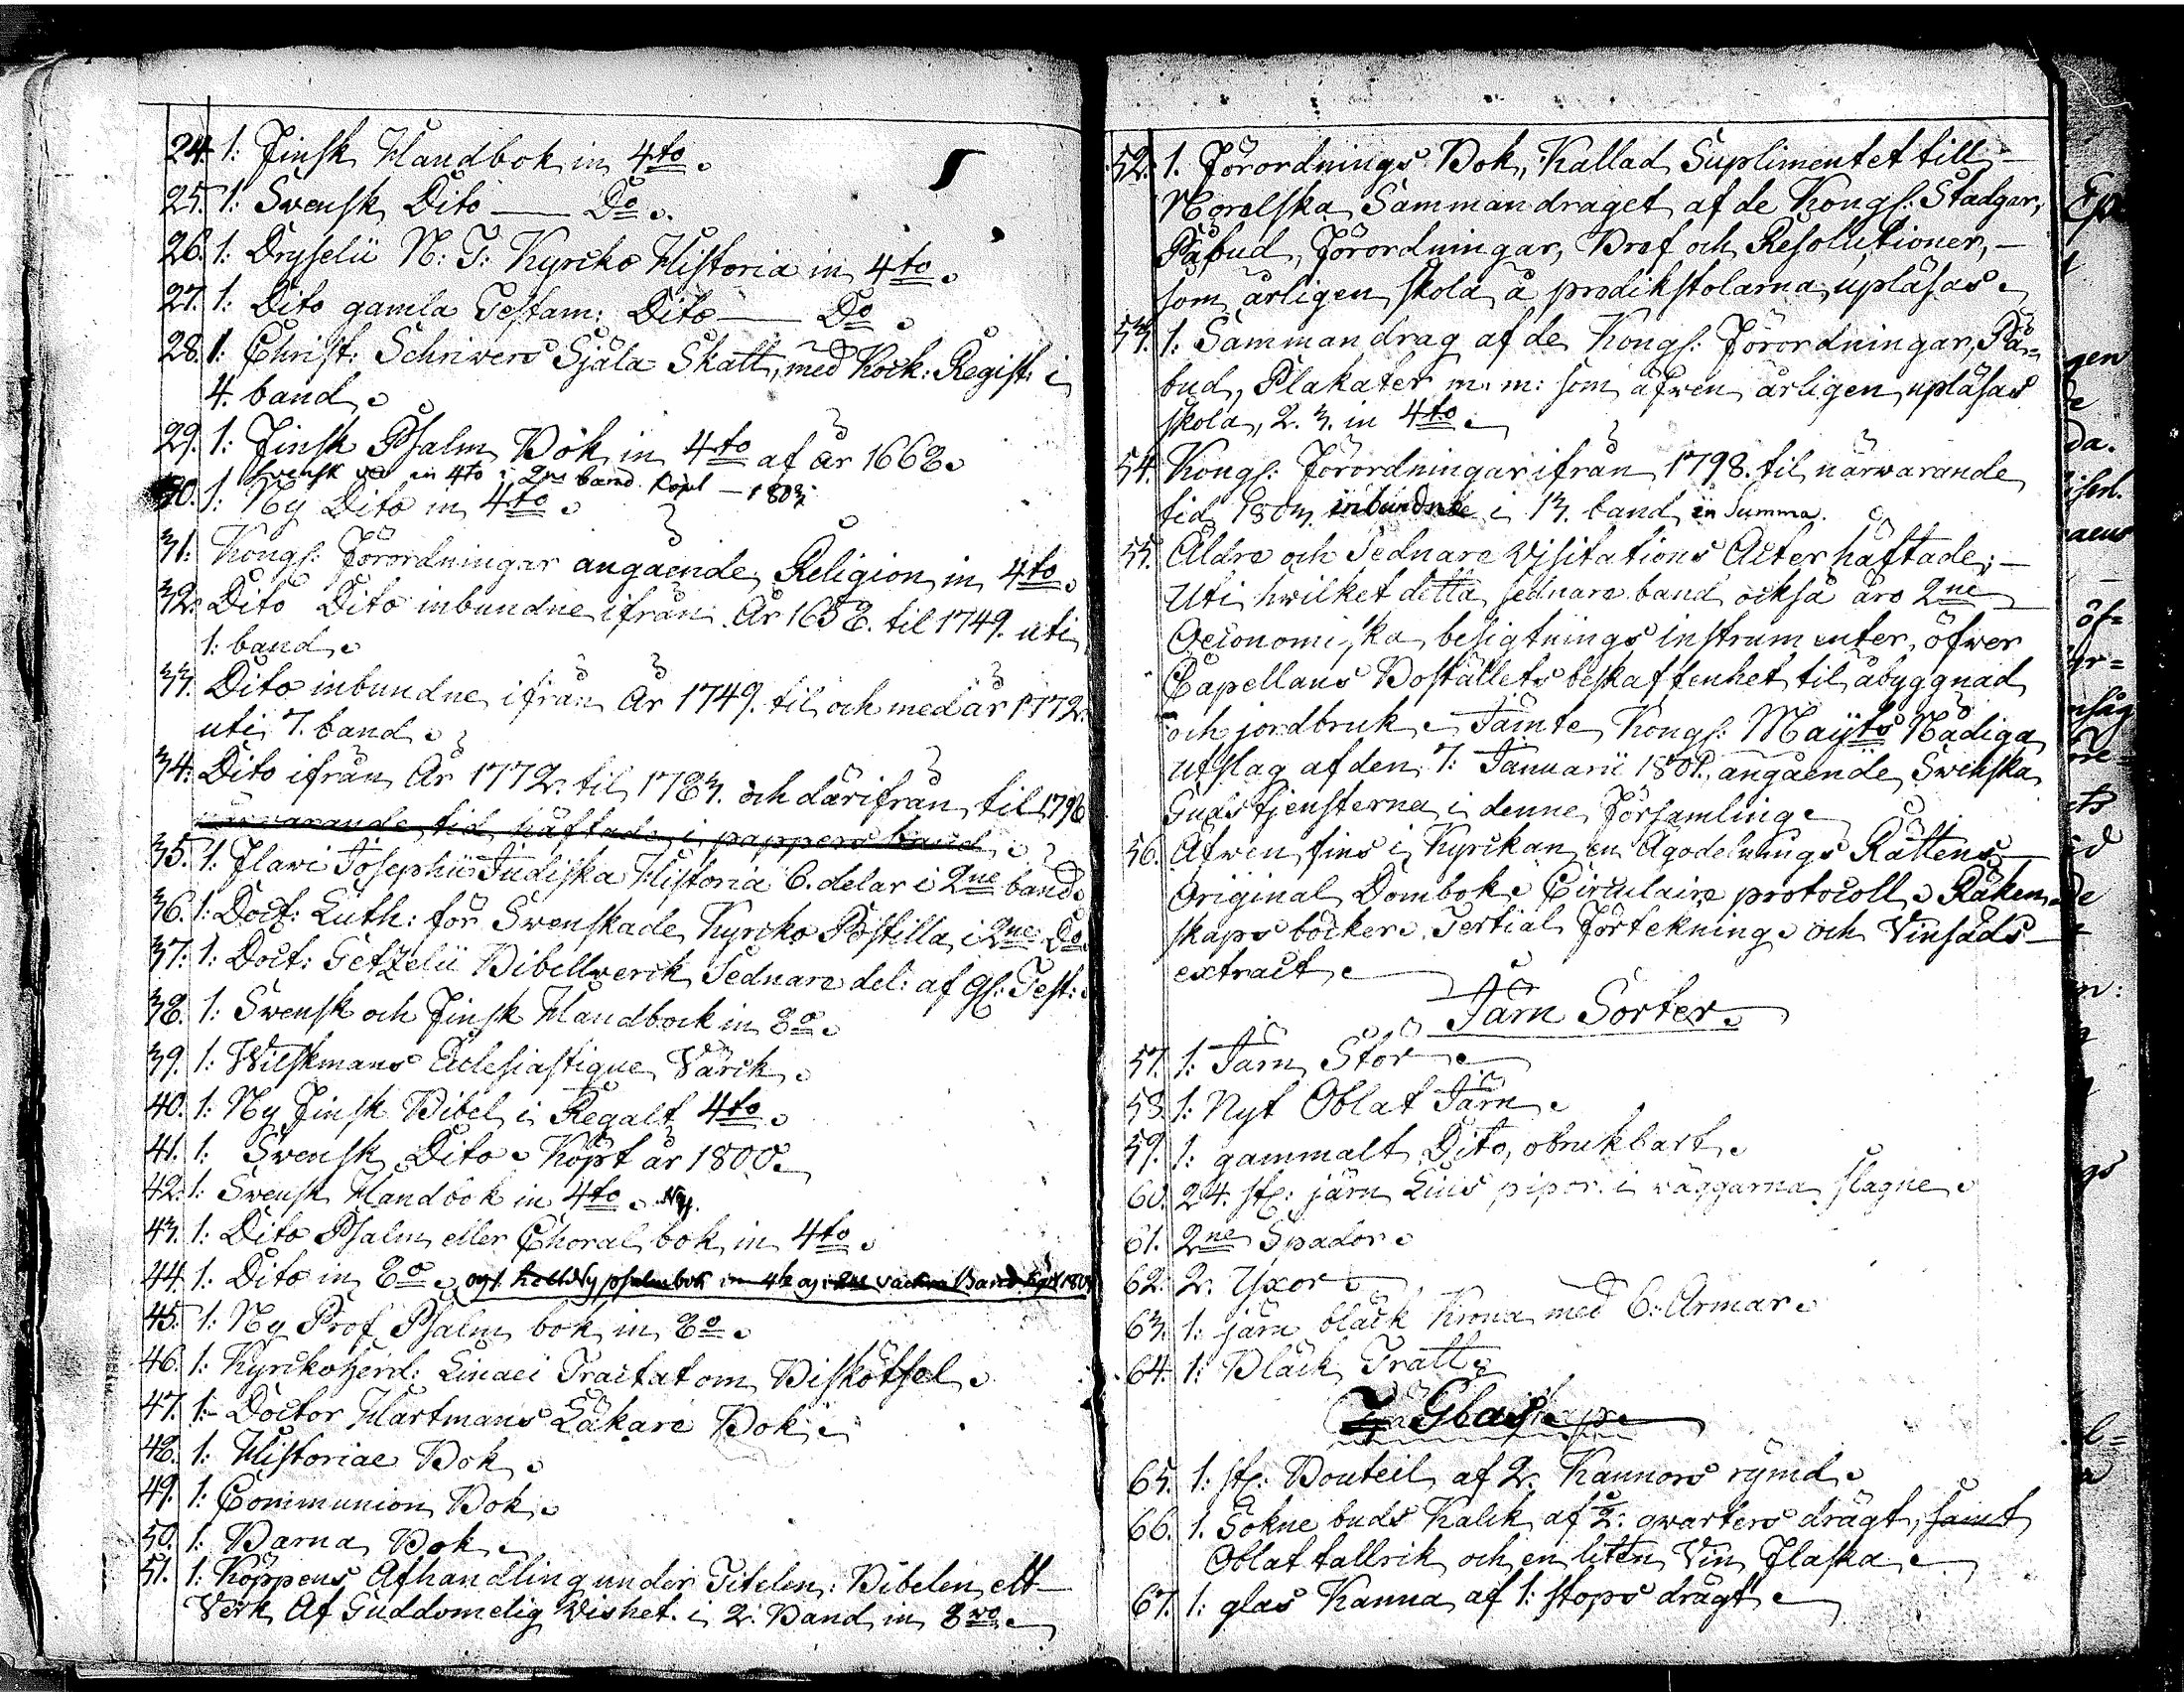 24. 1: Finsk Handbok in 4to.
25. 1: Svensk Dito — Do.
26. 1: Dryselii N: T: Kyrcko Historia in 4to.
27. 1: Dito gamla Testam: Dito — Do.
28. 1: Christ: Schrivers Själa Skatt, med Kock: Regist: i
4. band.
29. 1: Finsk Psalm Bok in 4to af år 1668.
1 Svensk in 4to i 2ne band köpt — 1803
30. 1: Ny Dito in 4to.
31. Kongl: Förordningar angående Religion in 4to.
32. Dito Dito inbundne ifrån År 1658. til 1749. uti
1: band.
33. Dito inbundne ifrån År 1749. til och med år 1772.
uti 7. band.
34. Dito ifrån År 1772. til 1783. och därifrån til 1798
närvarande tid häftade i pappers band.
35. 1: Flavi Josephii Judiska Historia 6. delar i 2ne band.
36. 1: Doct: Luth: för Svenskade Kyrcko Postilla i 2ne Do.
37. 1: Doct: Getzelii Bibellverck Sednare del: af Gl: Test:
38. 1: Svensk och Finsk Handbock in 8o.
39. 1: Wilskmans Eclesiastique Värck.
40. 1: Ny Finsk Bibel i Regalt 4to.
41. 1: Svensk Dito. Köpt år 1800.
42. 1: Svensk Handbok in 4to. Ny.
43. 1: Dito Psalm eller Choral bok in 4to.
44. 1: Dito in 8o. og 1. Ny psalmbok in 4to og i vackra Band köpt 180
45. 1: Ny Prof Psalm bok in 8o.
46. 1: Kyrckoherd: Linaei Tractat om Biskötsel.
47. 1: Doctor Hartmans Läkare Bok.
48. 1: Historiae Bok.
49. 1: Communion Bok.
50. 1: Barna Bok.
51. 1: Köppens Afhandling under Titelen: Bibelen, ett
Verk Af Guddomelig Vishet. i 2: Band in 8vo.
52. 1. Förordnings Bok, Kallad Suplimentet till
Norelska Sammandraget af de Kongl: Stadgar,
Påbud, Förordningar, Bref och Resolutioner,
som årligen skola å predikstolarna upläsas.
53. 1: Sammandrag af de Kongl: Förordningar, På=
bud, Plakater m: m: som äfven årligen upläsas
skola, 2. 3. in 4to.
54. Kongl: Förordningar ifrån 1798. til närwarande
tid 1803 inbundne i 13. band in Summa.
55. Äldre och Sednare Visitations Acter häftade;
Uti hvilket detta sednare band också äro 2ne
Oeconomiska besigtnings instrumenter, öfver
Capellans Boställets beskaffenhet til åbyggnad
och jordbruk. Jämte Kongl: Maijts Nådiga
utslag af den 7: Januarii 1801. angående Svenska
Gudstjensterna i denne Församling.
56. Äfven fins i Kyrckan en Ägodelnings Rättens
Original Dombok. Circulaire protocoll. Räken=
skaps böcker. Tertial Förtekning. och Vinsäds
extract.
Järn Sorter.
57. 1: Järn Stör.
58. 1: Nyt Oblat Järn.
59. 1: gammalt Dito, obrukbart.
60. 24. st: järn Lius pipor. i väggarna slagne.
61. 2ne Spador.
62. 2. Yxor.
63. 1: järn bläck Krona med 6: Armar.
64. 1: Bläck Tratt.
Glas.
65. 1. st: Bouteil af 2. Kannors rymd.
66. 1. Sokne buds Kalck af 2: qvarters drägt, samt
Oblat tallrik och en liten Vin Flaska.
67. 1: glas Kanna af 1: stops drägt.